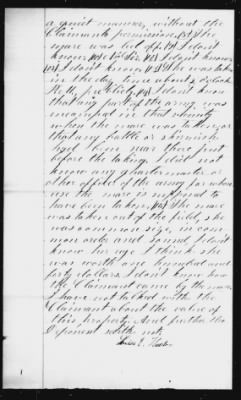 a quiet manner, without the
Claimants permission. The
mare was led off. I don't
know. No Sir. I don't know.
I don't know. She was taken
in the day time about 2 o'clock
P.M. I don't know
that any part of the army was
encamped in that vicinity
when the mare was taken, or
that any battle or skirmish
had been near there just
before the taking. I did not
know any quartermaster or
other officer of the army for whose
use the mare is supposed to
have been taken. The mare
was taken out of the field, she
was common size, in com
mon order and sound, I don't
know her age. I think she
was worth one hundred and
forty dollars. I don't know how
the Claimant came by the mare.
I have not talked with the
Claimant about the value of
this property. And further this
Deponent saith not.